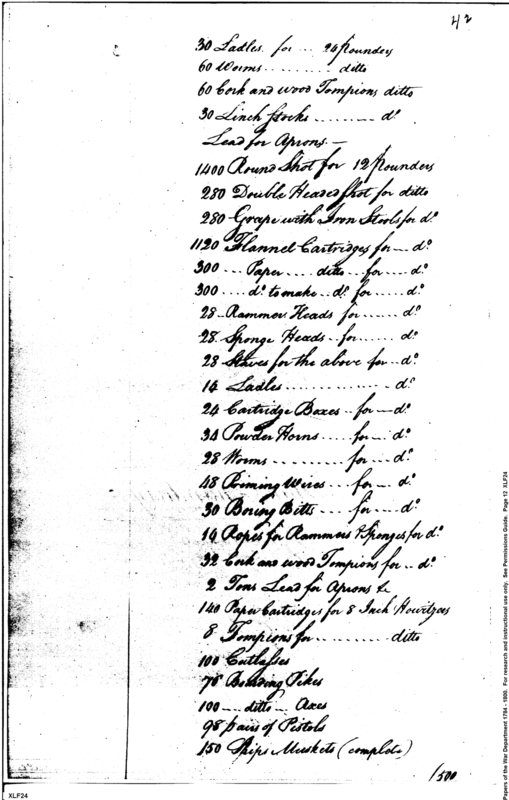 42
30 Ladles for ... 24 Pounders
60 Worms .......... ditto
60 Cork and wood Tompions ditto
30 Linch Stocks ......... do
Lead for Aprons. —
1400 Round Shot for 12 Pounders
280 Double Headed Shot for ditto
280 Grape with Iron Stools for do
1120 Flannel Cartridges for — do
300 ... Paper .... ditto .. for .... do
300 .... do to make .. do for ..... do
28 Rammer Heads for ...... do
28 Sponge Heads .. for ...... do
28 Staves for the above for .. do
14 Ladles .............. do
24 Cartridge Boxes .. for — do
34 Powder Horns ..... for .. do
28 Worms .......... for — do
48 Priming Wires ... for — do
30 Boring Bitts .... for — do
14 Ropes for Rammers & Sponges for do
32 Cork and wood Tompions for .. do
2 Tons Lead for Aprons &c
140 Paper Cartridges for 8 Inch Howitzers
8 Tompions for .......... ditto
100 Cutlasses
Boarding Pikes
100 — ditto — Axes
98 pairs of Pistols
150 Ships Muskets (complete)
1500
XLF24
Papers of the War Department 1784 - 1800. For research and instructional use only. See Permissions Guide. Page 12 XLF24